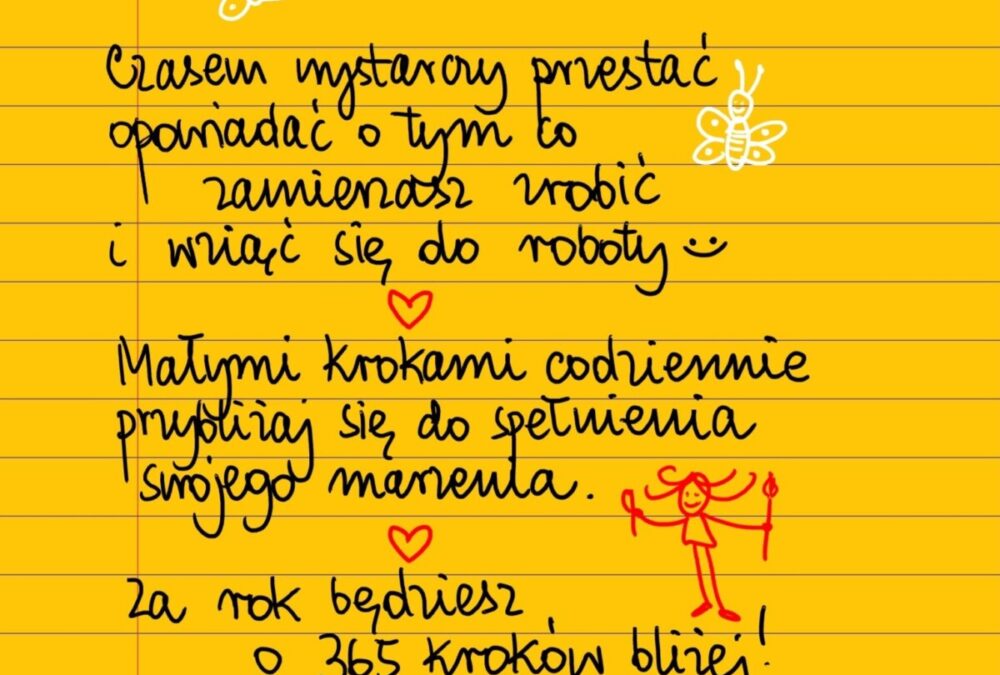 Czasem wystarczy przestać
opowiadać o tym co
zamierzasz zrobić
i wziąć się do roboty
Małymi krokami codziennie
przybliżaj się do spełnienia
swojego marzenia.
Za rok będziesz
o 365 kroków bliżej!